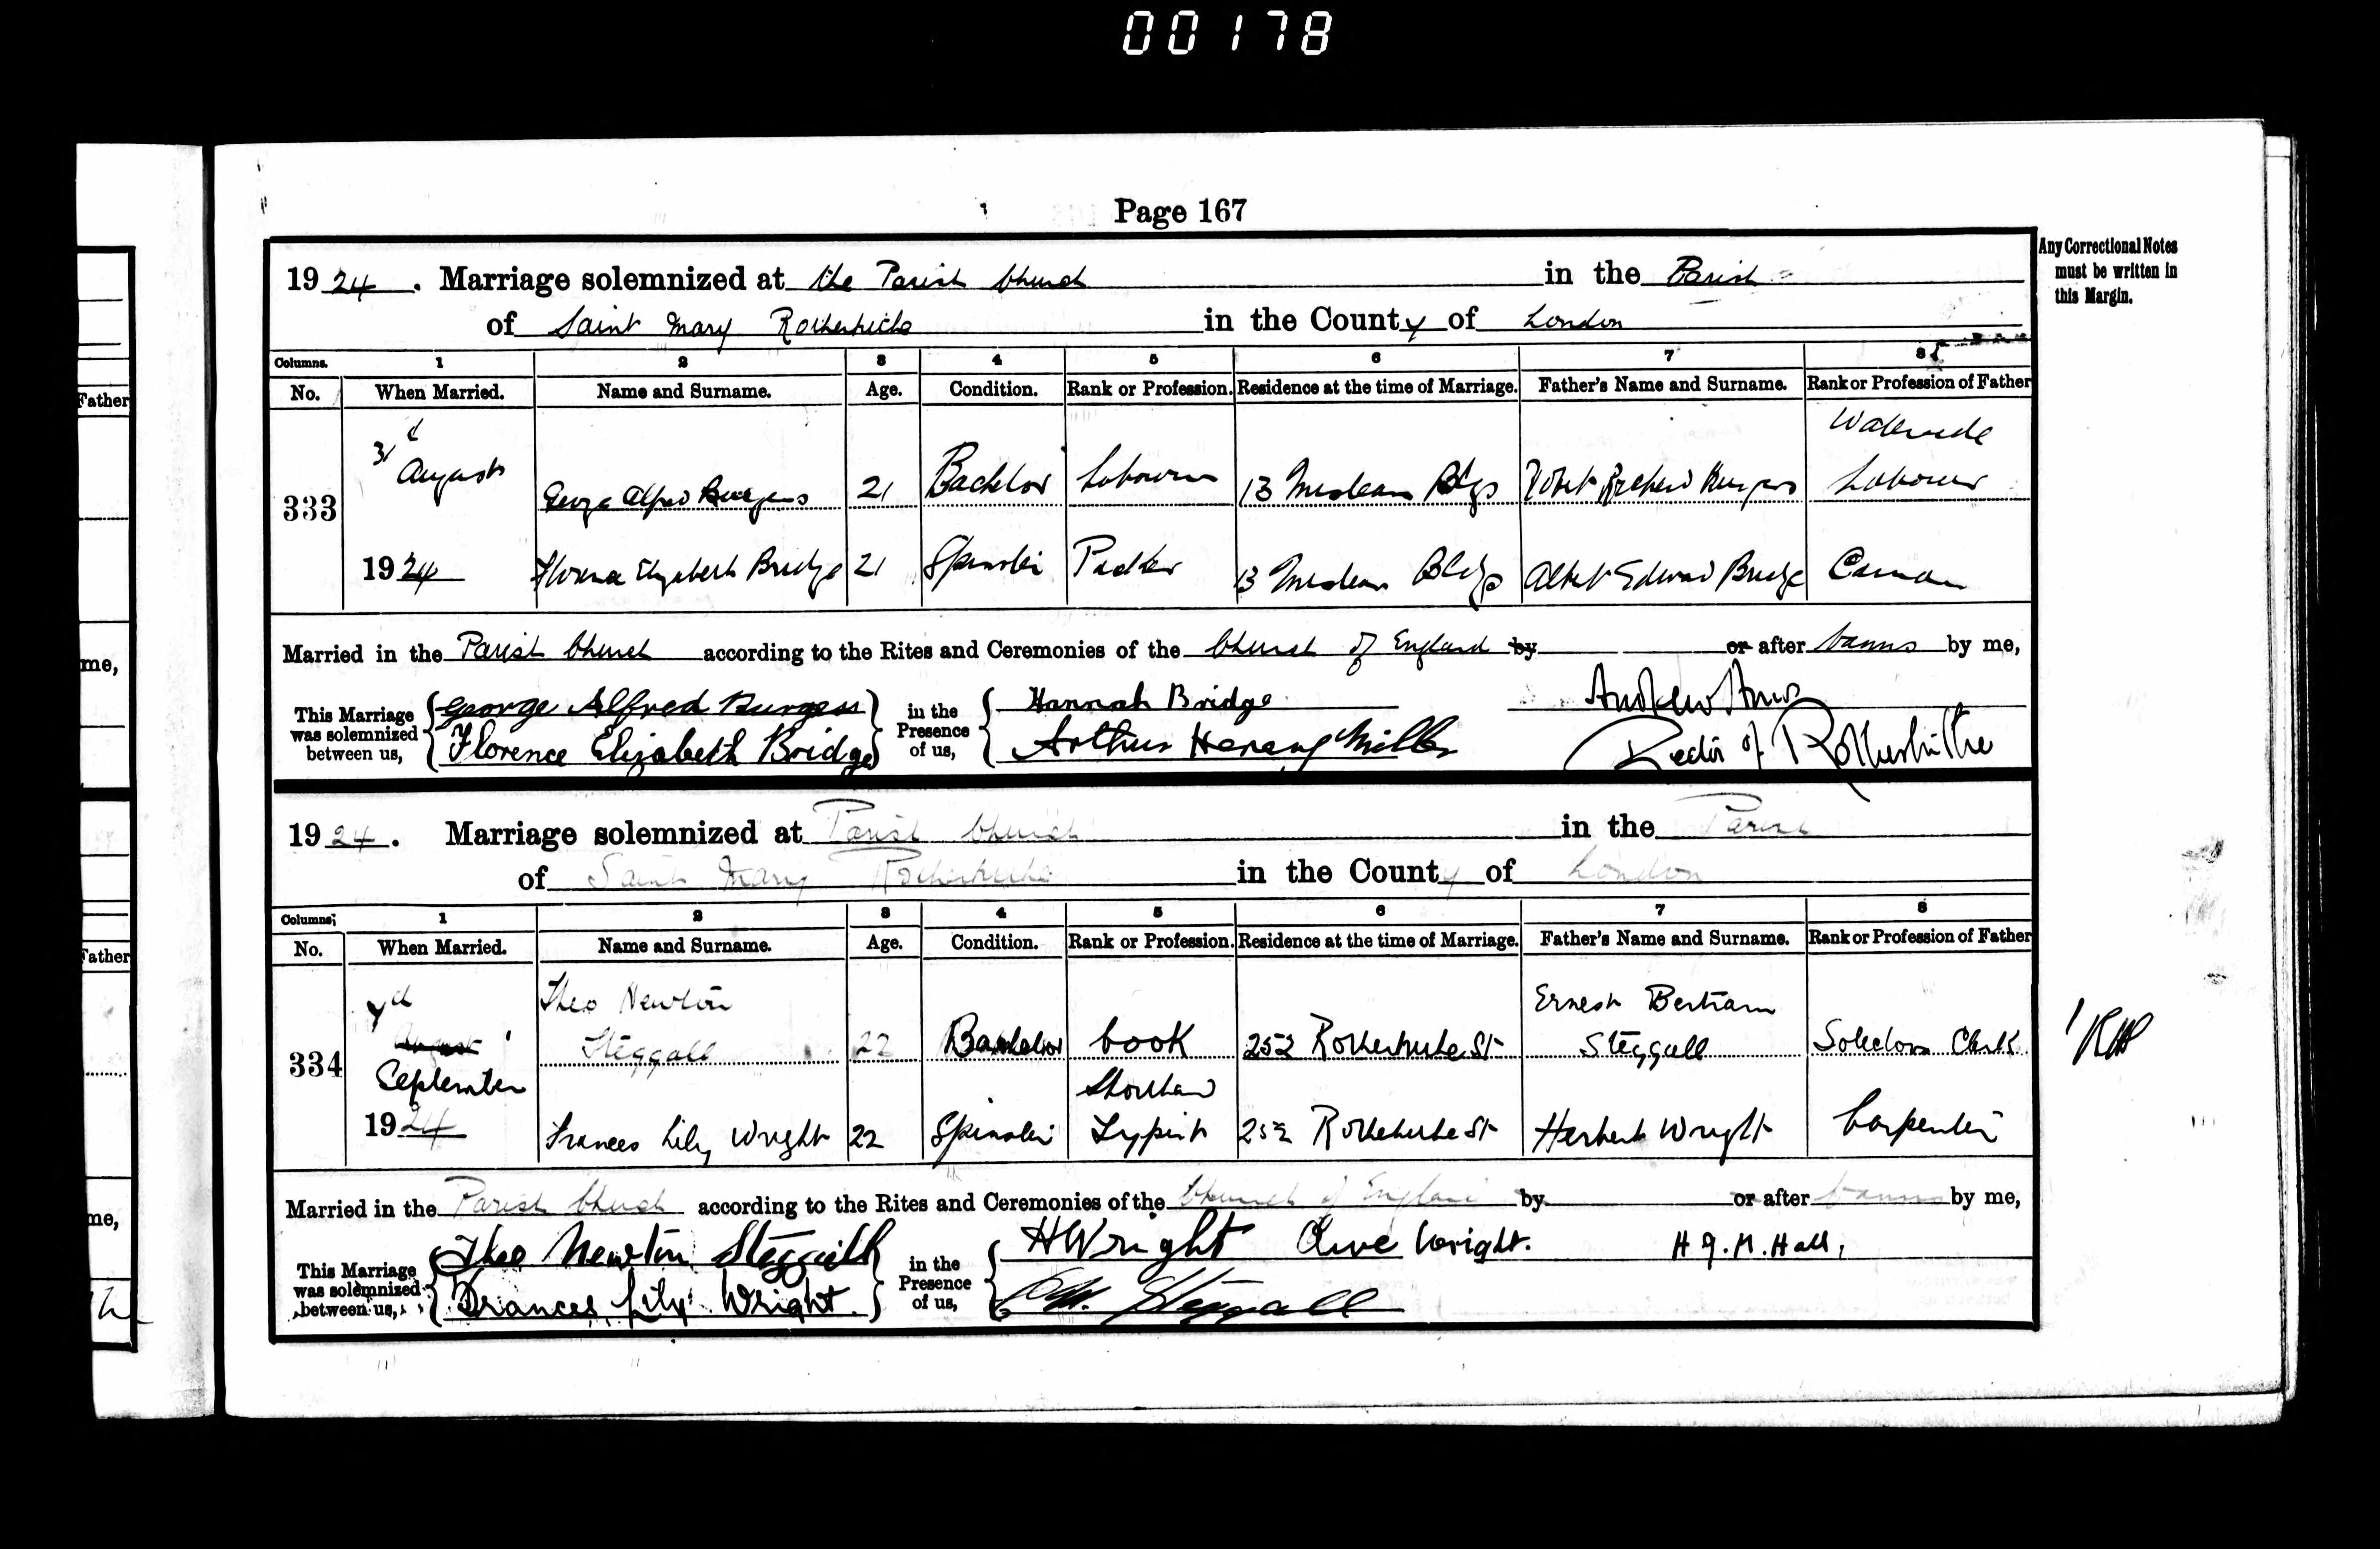 00178
Page 167
Any Correctional Notes
must be written in
this Margin.
1924. Marriage solemnized at the Parish Church in the Parish
of Saint Mary Rotherhithe in the County of London
Columns. 1 2 3 4 5 6 7 8
No. When Married. Name and Surname. Age. Condition. Rank or Profession. Residence at the time of Marriage. Father's Name and Surname. Rank or Profession of Father
Father
Waterside
August
333 George Alfred Burgess 21 Bachelor Labourer 13 Bldgs Robert Richard Burgess Labourer
1924 Elizabeth Bridge 21 Spinster Packer 13 Bldgs Albert Edward Bridge Carman
Married in the Parish Church according to the Rites and Ceremonies of the Church of England by or after banns by me,
me,
This Marriage was solemnized between us, George Alfred Burgess in the Presence of us, Hannah Bridge Andrew
Florence Elizabeth Bridge Arthur Miller Rector of Rotherhithe
1924. Marriage solemnized at Parish Church in the Parish
of Saint Mary Rotherhithe in the County of London
Columns; 1 2 3 4 5 6 7 8
No. When Married. Name and Surname. Age. Condition. Rank or Profession. Residence at the time of Marriage. Father's Name and Surname. Rank or Profession of Father
Father
Theo Newton Ernest Bertram
August Steggall 22 Bachelor Cook 252 Rotherhithe St Steggall Solicitors Clerk
334 September Shorthand
1924 Frances Lily Wright 22 Spinster Typist 252 Rotherhithe St Herbert Wright Carpenter
Married in the Parish Church according to the Rites and Ceremonies of the Church of England by or after banns by me,
me,
This Marriage was solemnized between us, Theo Newton Steggall in the Presence of us, H Wright Olive Wright. Hall,
Frances Lily Wright. Steggall